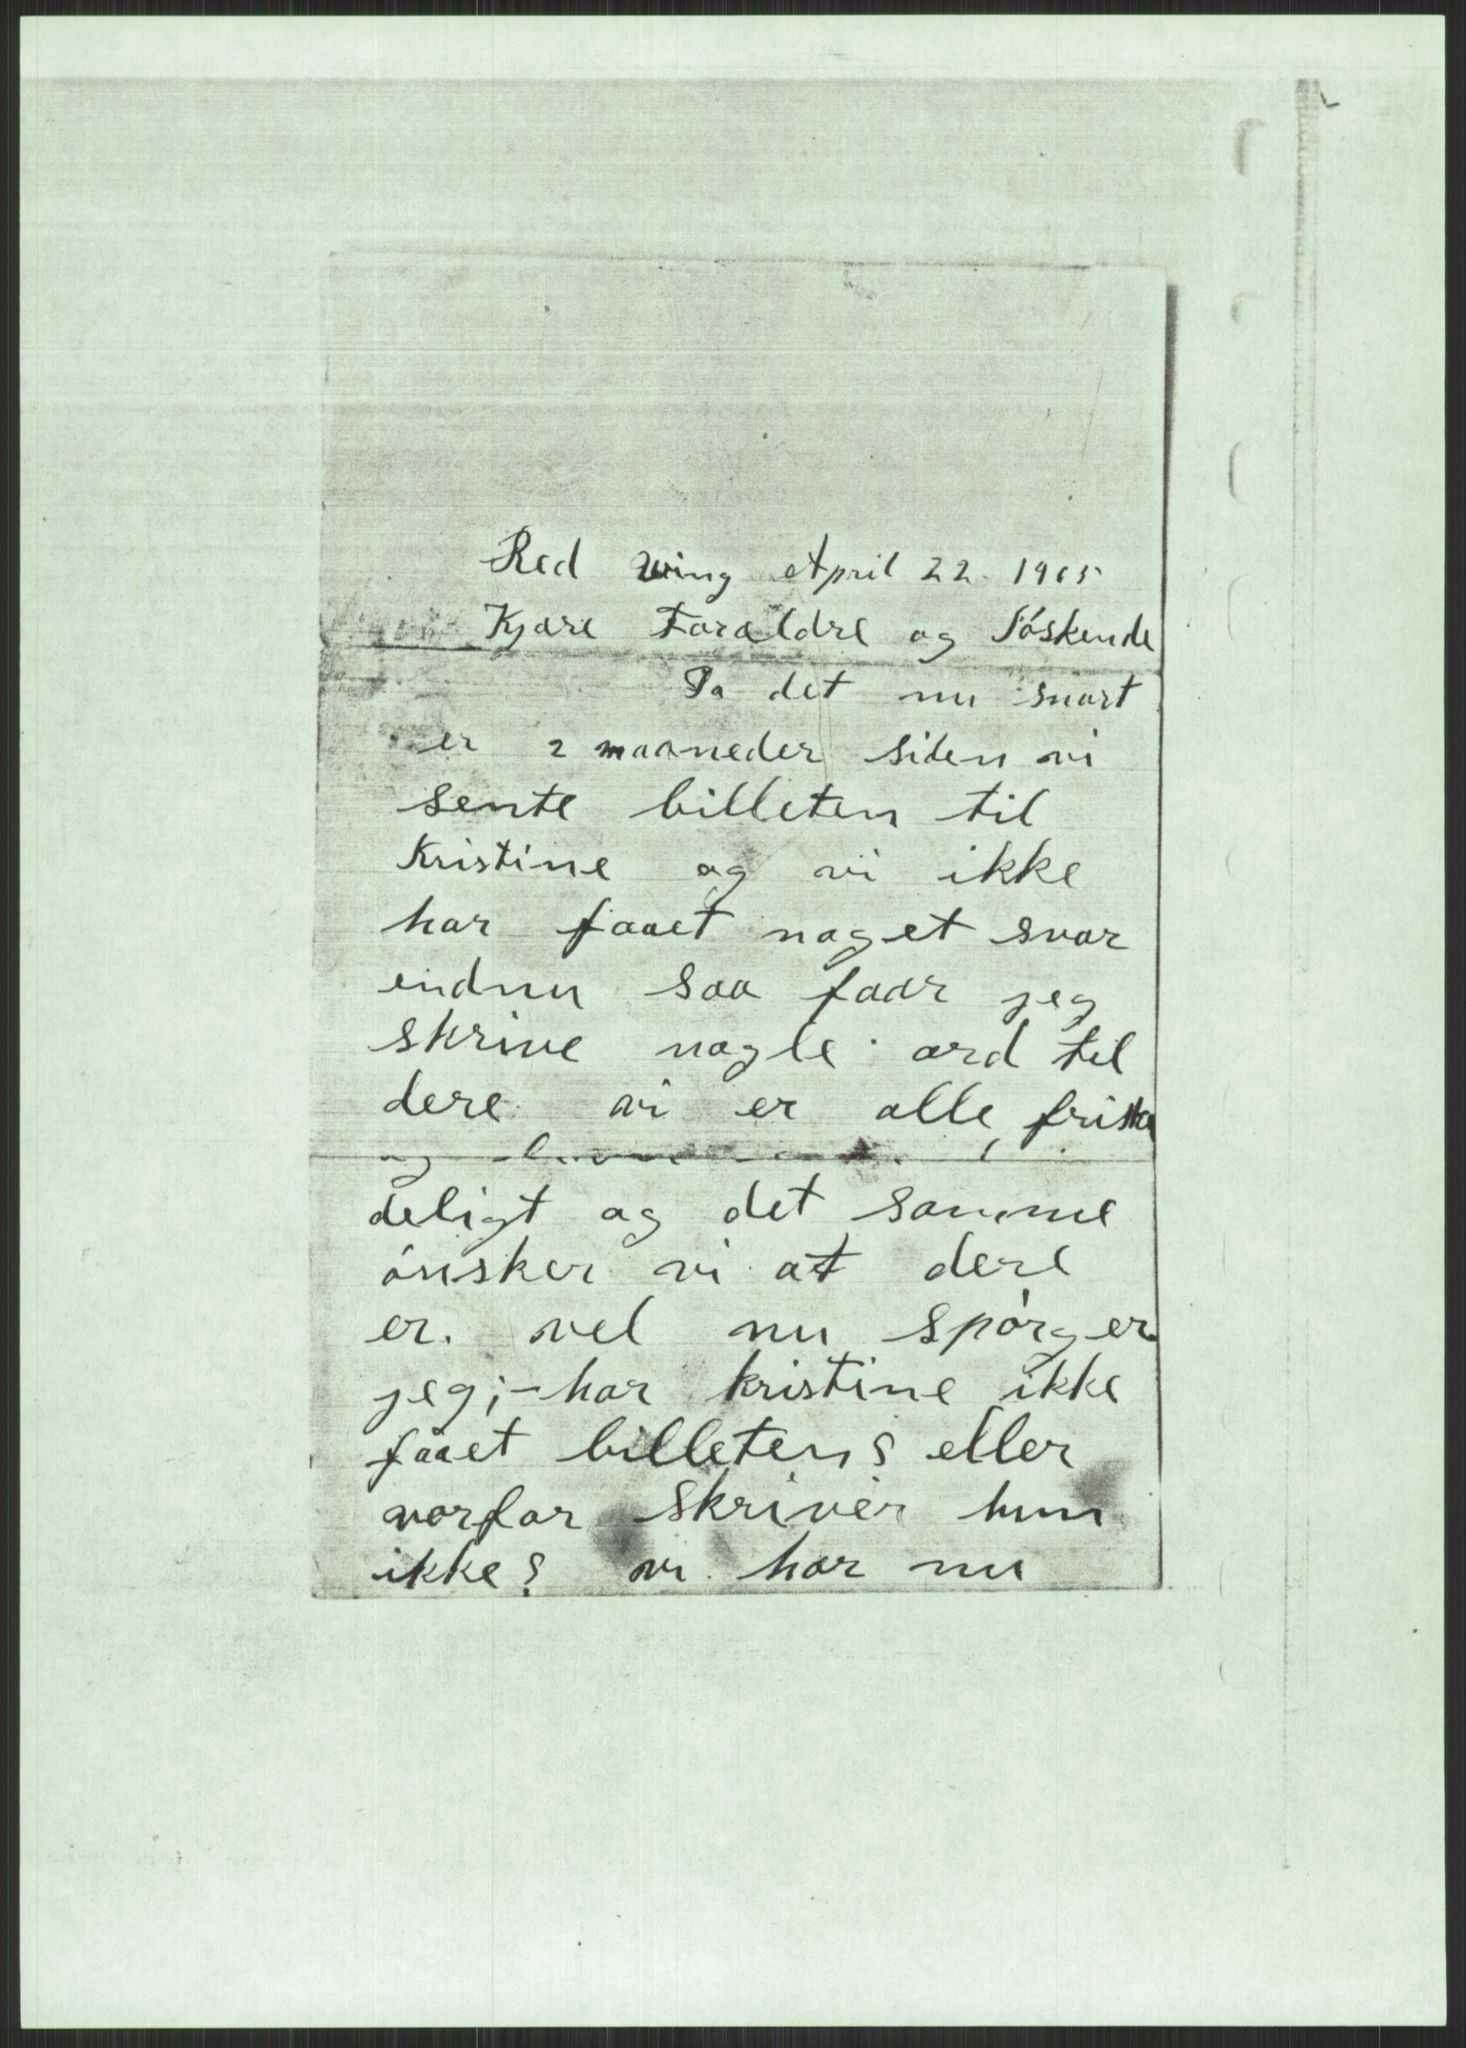 Red Wing April 22. 1905
Kjære Forældre og Söskende
Da det nu snart
er 2 maaneder siden vi
sente billeten til
Kristine og vi ikke
har faaet noget svar
endnu saa faar jeg
skrive nogle ord til
dere vi er alle friska
og
deligt og det samme
ónsker vi at dere
er. vel nu spórger
jeg;- har kristine ikke
faaet billeten? eller
vorfor skriver hun
ikke? vi har nu